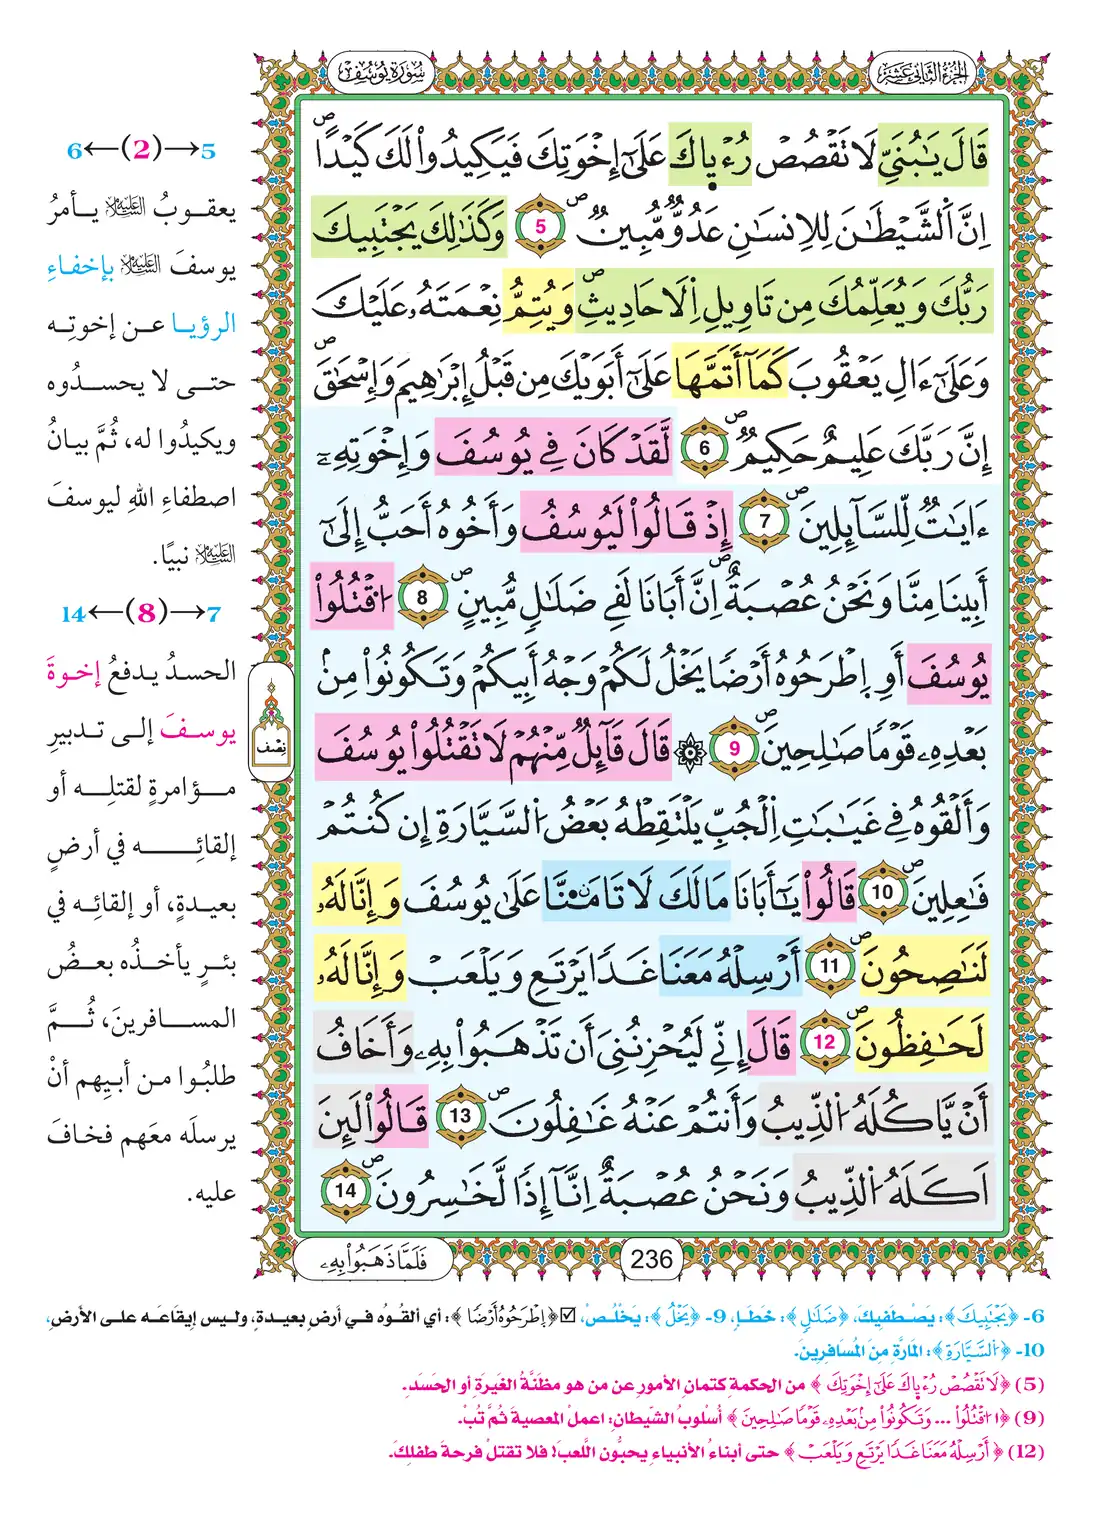 الجزء الثاني عشر
سورة يوسف
قَالَ يَٰبُنَيِّ لَا تَقْصُصْ رُءْيٜاكَ عَلَىٰٓ إِخْوَتِكَ فَيَكِيدُواْ لَكَ كَيْداًۖ
اِنَّ اَ۬لشَّيْطَٰنَ لِلِانسَٰنِ عَدُوّٞ مُّبِينٞۖ 5 وَكَذَٰلِكَ يَجْتَبِيكَ
رَبُّكَ وَيُعَلِّمُكَ مِن تَاوِيلِ اِ۬لَاحَادِيثِۖ وَيُتِمُّ نِعْمَتَهُۥ عَلَيْكَ
وَعَلَىٰٓ ءَالِ يَعْقُوبَ كَمَآ أَتَمَّهَا عَلَىٰٓ أَبَوَيْكَ مِن قَبْلُ إِبْرَٰهِيمَ وَإِسْحَٰقَۖ
إِنَّ رَبَّكَ عَلِيمٌ حَكِيمٞۖ 6 لَّقَدْ كَانَ فِي يُوسُفَ وَإِخْوَتِهِۦٓ
ءَايَٰتٞ لِّلسَّآئِلِينَۖ 7 إِذْ قَالُواْ لَيُوسُفُ وَأَخُوهُ أَحَبُّ إِلَىٰٓ
أَبِينَا مِنَّا وَنَحْنُ عُصْبَةٌۖ اِنَّ أَبَانَا لَفِي ضَلَٰلٖ مُّبِينٍۖ 8 اُ۟قْتُلُواْ
يُوسُفَ أَوِ اِ۪طْرَحُوهُ أَرْضاٗ يَخْلُ لَكُمْ وَجْهُ أَبِيكُمْ وَتَكُونُواْ مِنۢ
بَعْدِهِۦ قَوْماٗ صَٰلِحِينَۖ 9 ۞ قَالَ قَآئِلٞ مِّنْهُمْ لَا تَقْتُلُواْ يُوسُفَ
وَأَلْقُوهُ فِي غَيَٰبَٰتِ اِ۬لْجُبِّ يَلْتَقِطْهُ بَعْضُ اُ۬لسَّيَّارَةِ إِن كُنتُمْ
فَٰعِلِينَۖ 10 قَالُواْ يَٰٓأَبَانَا مَا لَكَ لَا تَامَ۬نَّا عَلَىٰ يُوسُفَ وَإِنَّا لَهُۥ
لَنَٰصِحُونَۖ 11 أَرْسِلْهُ مَعَنَا غَداٗ يَرْتَعِ وَيَلْعَبْ وَإِنَّا لَهُۥ
لَحَٰفِظُونَۖ 12 قَالَ إِنِّي لَيُحْزِنُنِيَ أَن تَذْهَبُواْ بِهِۦ وَأَخَافُ
أَنْ يَّاكُلَهُ اُ۬لذِّيبُ وَأَنتُمْ عَنْهُ غَٰفِلُونَۖ 13 قَالُواْ لَئِنَ
اَكَلَهُ اُ۬لذِّيبُ وَنَحْنُ عُصْبَةٌ اِنَّآ إِذاٗ لَّخَٰسِرُونَۖ 14
نصف
236
فَلَمَّا ذَهَبُواْ بِهِۦ
5→(2)←6
يعقوبُ عليه السلام يأمرُ
يوسفَ عليه السلام بإخفاءِ
الرؤيا عن إخوتِه
حتى لا يحسدُوه
ويكيدُوا له، ثُمَّ بيانُ
اصطفاءِ اللهِ ليوسفَ
عليه السلام نبيًا.
7→(8)←14
الحسدُ يدفعُ إخوةَ
يوسفَ إلى تدبيرِ
مؤامرةٍ لقتلِه أو
إلقائِه في أرضٍ
بعيدةٍ، أو إلقائِه في
بئرٍ يأخذُه بعضُ
المسافرينَ، ثُمَّ
طلبُوا من أبيِهم أنْ
يرسلَه معَهم فخافَ
عليه.
6- ﴿يَجْتَبِيكَ﴾: يَصْطَفِيكَ، ﴿ضَلَٰلٖ﴾: خَطَإٍ، 9- ﴿يَخْلُ﴾: يَخْلُصْ، ☑ ﴿اِ۪طْرَحُوهُ أَرْضاٗ﴾: أي ألقُوْه في أرضٍ بعيدةٍ، وليس إيقاعَه على الأرضِ،
10- ﴿اُ۬لسَّيَّارَةِ﴾: المَارَّةِ مِنَ المُسَافِرِينَ.
(5) ﴿لَا تَقْصُصْ رُءْيٜاكَ عَلَىٰٓ إِخْوَتِكَ﴾ من الحكمةِ كتمانِ الأمورِ عن من هو مظنَّةُ الغَيرَةِ أو الحَسَدِ.
(9) ﴿اُ۟قْتُلُواْ ... وَتَكُونُواْ مِنۢ بَعْدِهِۦ قَوْماٗ صَٰلِحِينَ﴾ أسْلوبُ الشّيطانِ: اعملْ المعصيةَ ثُمَّ تُبْ.
(12) ﴿أَرْسِلْهُ مَعَنَا غَداٗ يَرْتَعِ وَيَلْعَبْ﴾ حتى أبناءُ الأنبياءِ يحبُّون اللَّعبَ! فلا تقتلْ فرحةَ طفلِكَ.